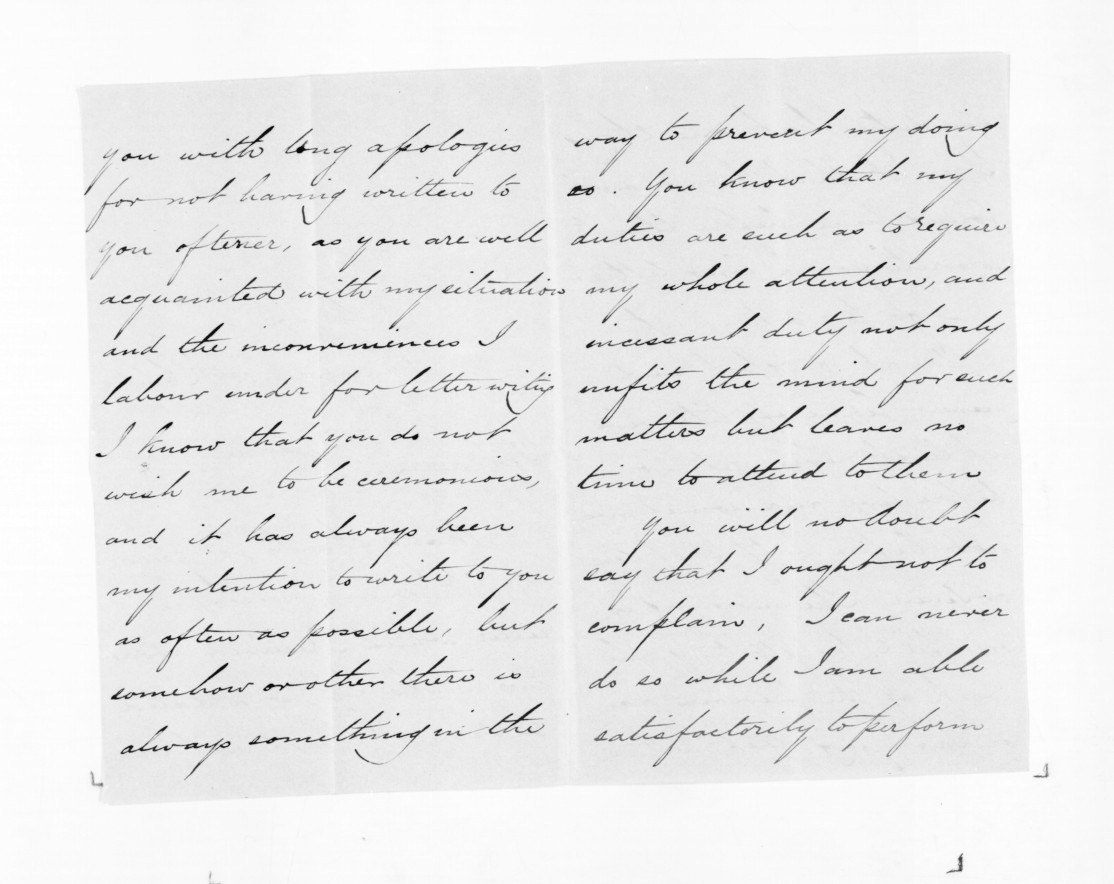 you with long apologies
for not having written to
you oftener, as you are well
acquainted with my situation
and the inconveniences I
labour under for letter witing
I know that you do not
wish me to be ceremonious,
and it has always been
my intention to write to you
as often as possible, but
somehow or other there is
always something in the
way to prevent my doing
so. You know that my
duties are such as to require
my whole attention, and
incessant duty not only
unfits the mind for such
matters but leaves no
time to attend to them
You will no doubt
say that I ought not to
complain, I can never
do so while I am able
satisfactorily to perform